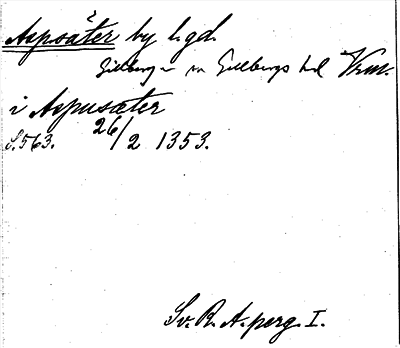 Aspsäter by l.gd.
Gillberga sn Gillbergs hd Vrm.
i Aspusæter
S.563. 26/2 1353.
Sv. R. A. perg. I.